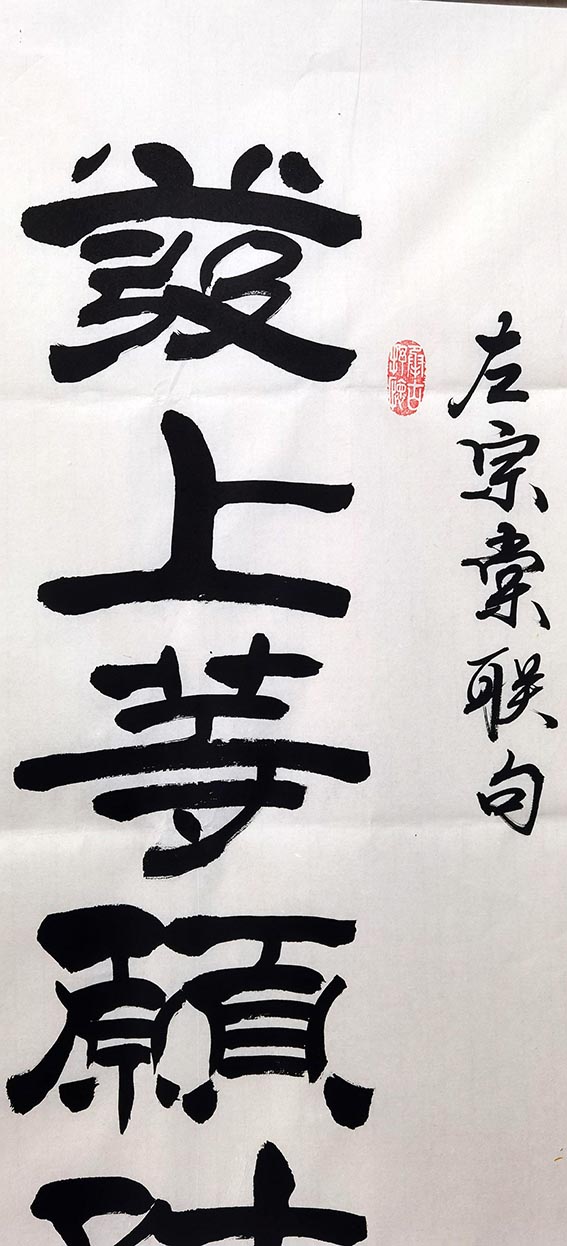 左宗棠联句
發上等願